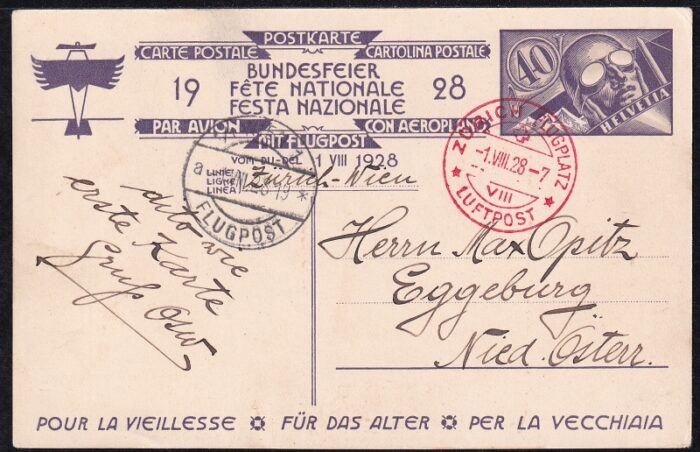 POSTKARTE
CARTE POSTALE CARTOLINA POSTALE
19 BUNDESFEIER 28
FÊTE NATIONALE
FESTA NAZIONALE
PAR AVION MIT FLUGPOST CON AEROPLANO
VOM-DU-DEL 1 VIII 1928
LINIE
LIGNE
LINEA
Zürich-Wien
40
HELVETIA
ZÜRICH FLUGPLATZ
-1.VIII.28-7
VIII
LUFTPOST
FLUGPOST
dito wie
erste Karte
Gruß Osw
Herrn Max Opitz
Eggeburg
Nied. Österr.
POUR LA VIEILLESSE FÜR DAS ALTER PER LA VECCHIAIA